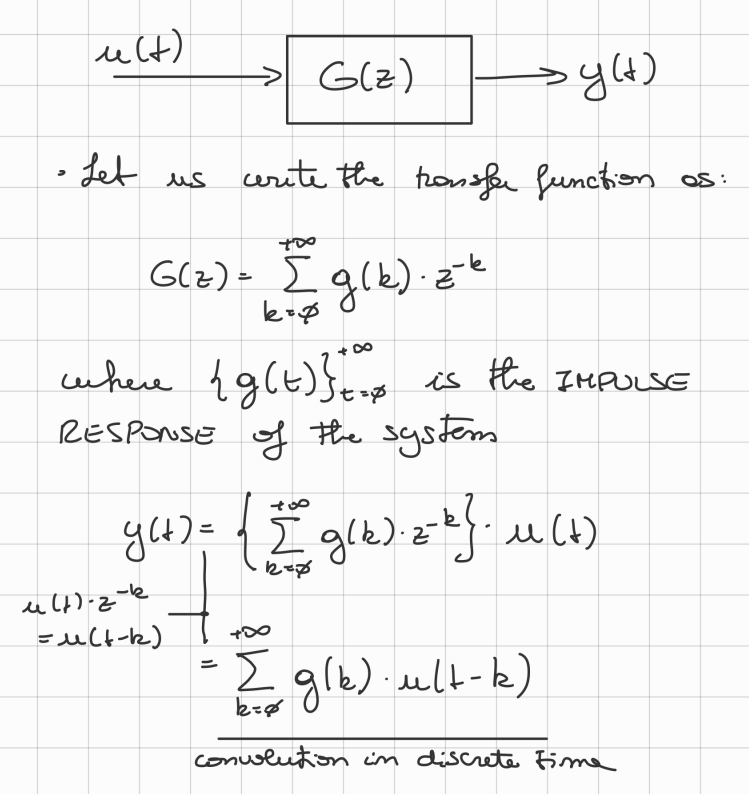 u(t) G(z) y(t)
· Let us write the transfer function as:
G(z) = \sum_{k=0}^{+∞} g(k) · z^{-k}
where {g(t)}_{t=0}^{+∞} is the IMPULSE
RESPONSE of the system
y(t) = { \sum_{k=0}^{+∞} g(k) · z^{-k} } · u(t)
u(t) · z^{-k}
= u(t-k)
= \sum_{k=0}^{+∞} g(k) · u(t-k)
convolution in discrete time